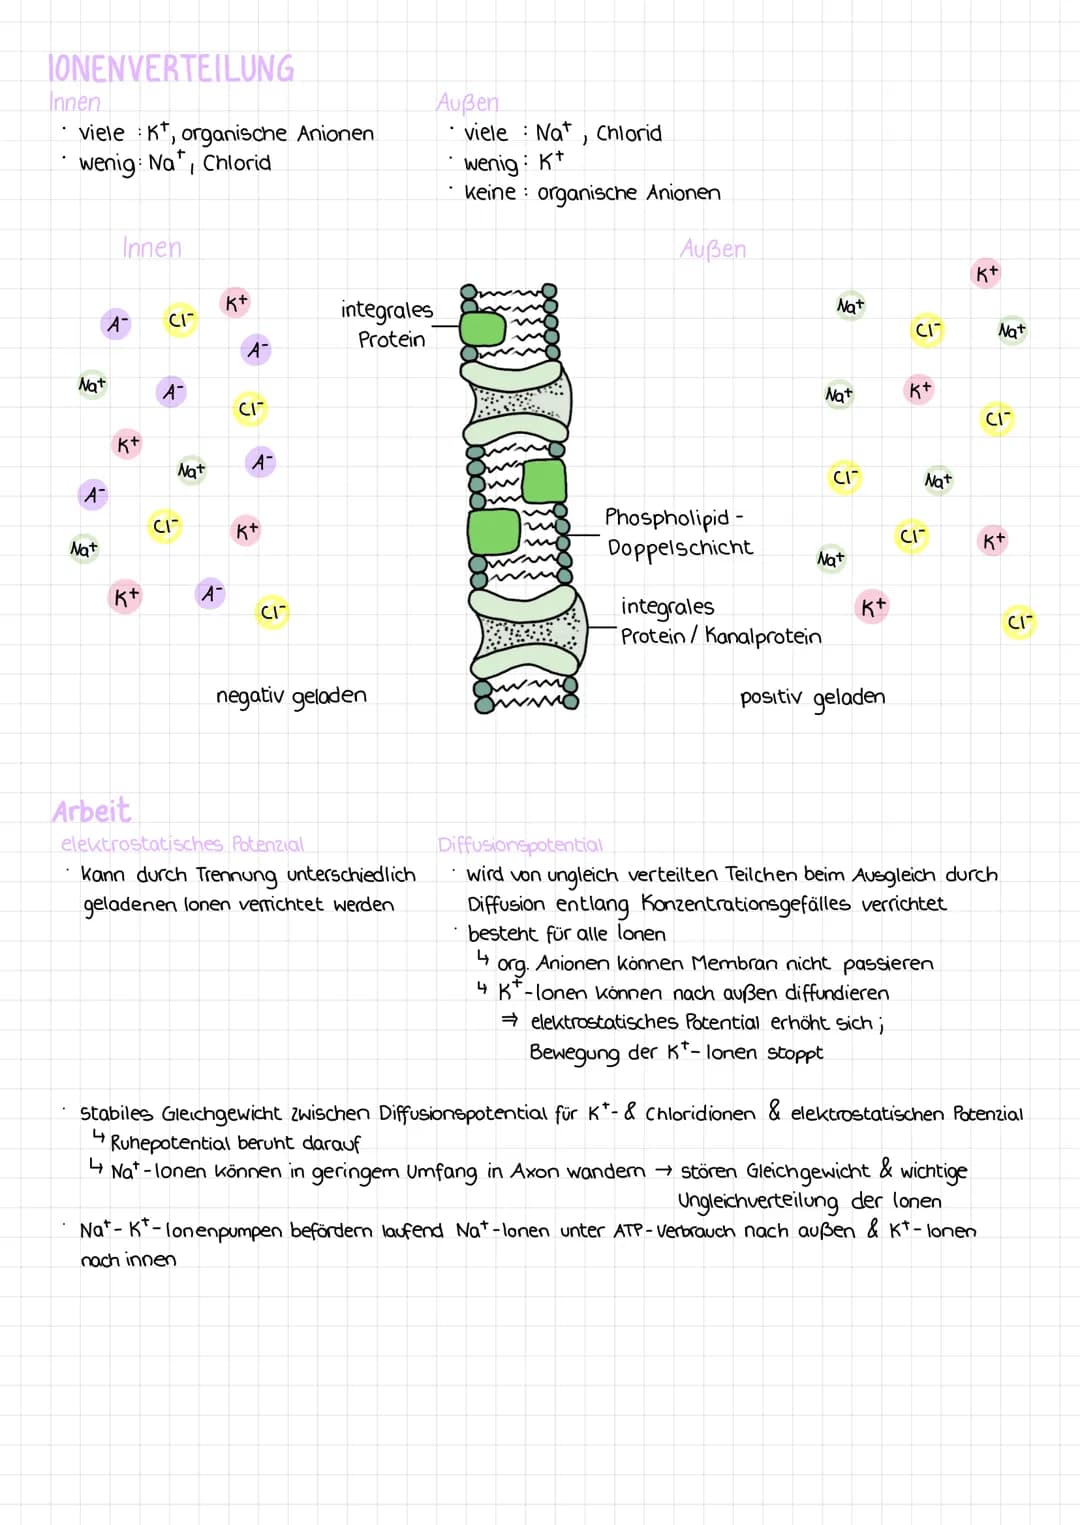 IONENVERTEILUNG
Innen
· viele : K⁺, organische Anionen
· wenig: Na⁺, Chlorid
Außen
· viele : Na⁺, Chlorid
· wenig: K⁺
· keine : organische Anionen
Innen
Außen
K⁺
A⁻ Cl⁻ K⁺
integrales
Protein
Na⁺
Cl⁻ Na⁺
A⁻
Na⁺ A⁻
Cl⁻
Na⁺ K⁺
Cl⁻
K⁺
Na⁺ A⁻
Cl⁻ Na⁺
A⁻
Cl⁻ K⁺
Na⁺
Phospholipid-
Doppelschicht
Cl⁻ K⁺
Na⁺
K⁺ A⁻
Cl⁻
integrales
Protein / Kanalprotein
K⁺
Cl⁻
negativ geladen
positiv geladen
Arbeit
elektrostatisches Potenzial
· kann durch Trennung unterschiedlich
geladenen Ionen verrichtet werden
Diffusionspotential
· wird von ungleich verteilten Teilchen beim Ausgleich durch
Diffusion entlang Konzentrationsgefälles verrichtet
· besteht für alle Ionen
↳ org. Anionen können Membran nicht passieren
↳ K⁺-Ionen können nach außen diffundieren
⇒ elektrostatisches Potential erhöht sich ;
Bewegung der K⁺- Ionen stoppt
· stabiles Gleichgewicht zwischen Diffusionspotential für K⁺- & Chloridionen & elektrostatischen Potenzial
↳ Ruhepotential beruht darauf
↳ Na⁺-Ionen können in geringem Umfang in Axon wandern → stören Gleichgewicht & wichtige
Ungleichverteilung der Ionen
· Na⁺- K⁺- Ionenpumpen befördern laufend Na⁺-Ionen unter ATP-Verbrauch nach außen & K⁺- Ionen
nach innen